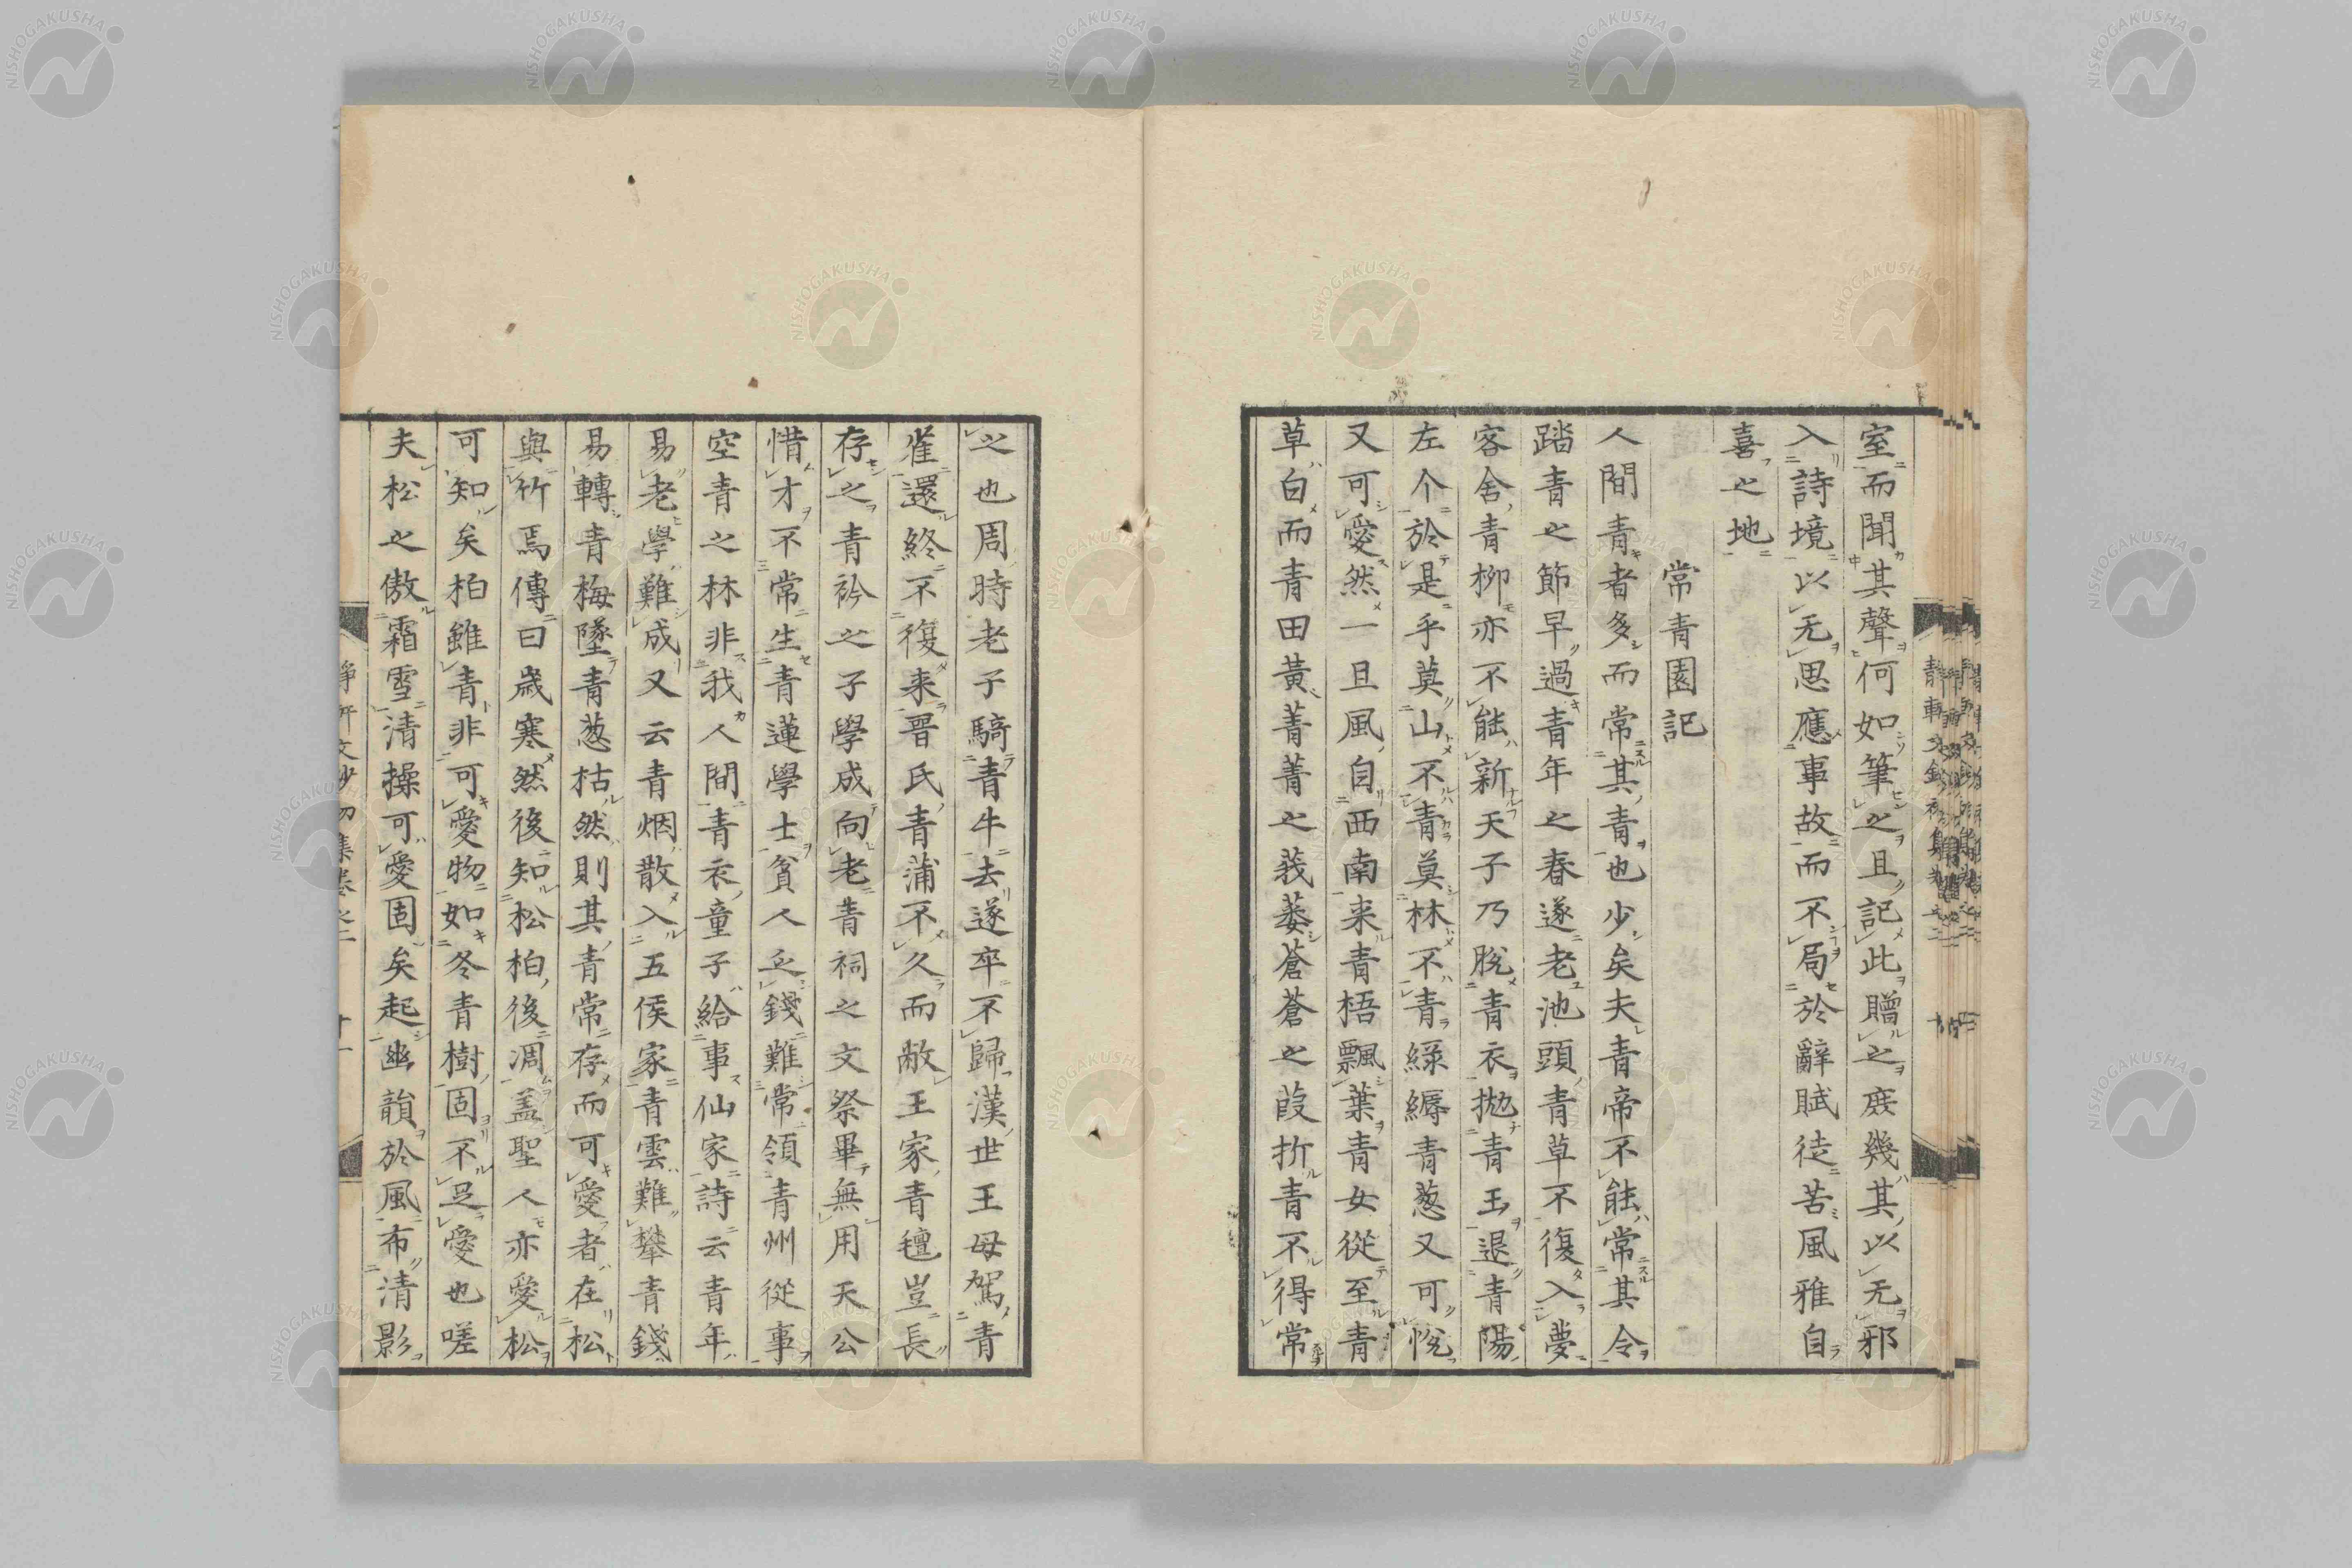 室而聞其聲何如筆之且記此贈之庶幾其以无邪
入詩境以无思應事故而不局於辭賦徒苦風雅自
喜之地
常青園記
人間青者多而常其青也少矣夫青帝不能常其令
踏青之節早過青年之春遂老池頭青草不復入夢
客舍青柳亦不能新天子乃脫青衣拋青玉退青陽
左个於是乎莫山不青莫林不青綠縟青葱又可悅
又可愛然一旦風自西南来青梧飄葉青女從至青
草白而青田黃菁菁之莪萎蒼蒼之葭折青不得常
之也周時老子騎青牛去遂卒不歸漢世王母駕青
雀還終不復来晋氏青蒲不久而敝王家青氊豈長
存之青衿之子學成向老青祠之文祭畢無用天公
惜才不常生青蓮學士貧人乏錢難常領青州從事
空青之林非我人間青衣童子給事仙家詩云青年
易老學難成又云青烟散入五侯家青雲難攀青錢
易轉青梅墜青葱枯然則其青常存而可愛者在松
與竹焉傳曰歲寒然後知松柏後凋蓋聖人亦愛松
可知矣柏雖青非可愛物如冬青樹固不足愛也嗟
夫松之傲霜雪清操可愛固矣起幽韻於風布清影